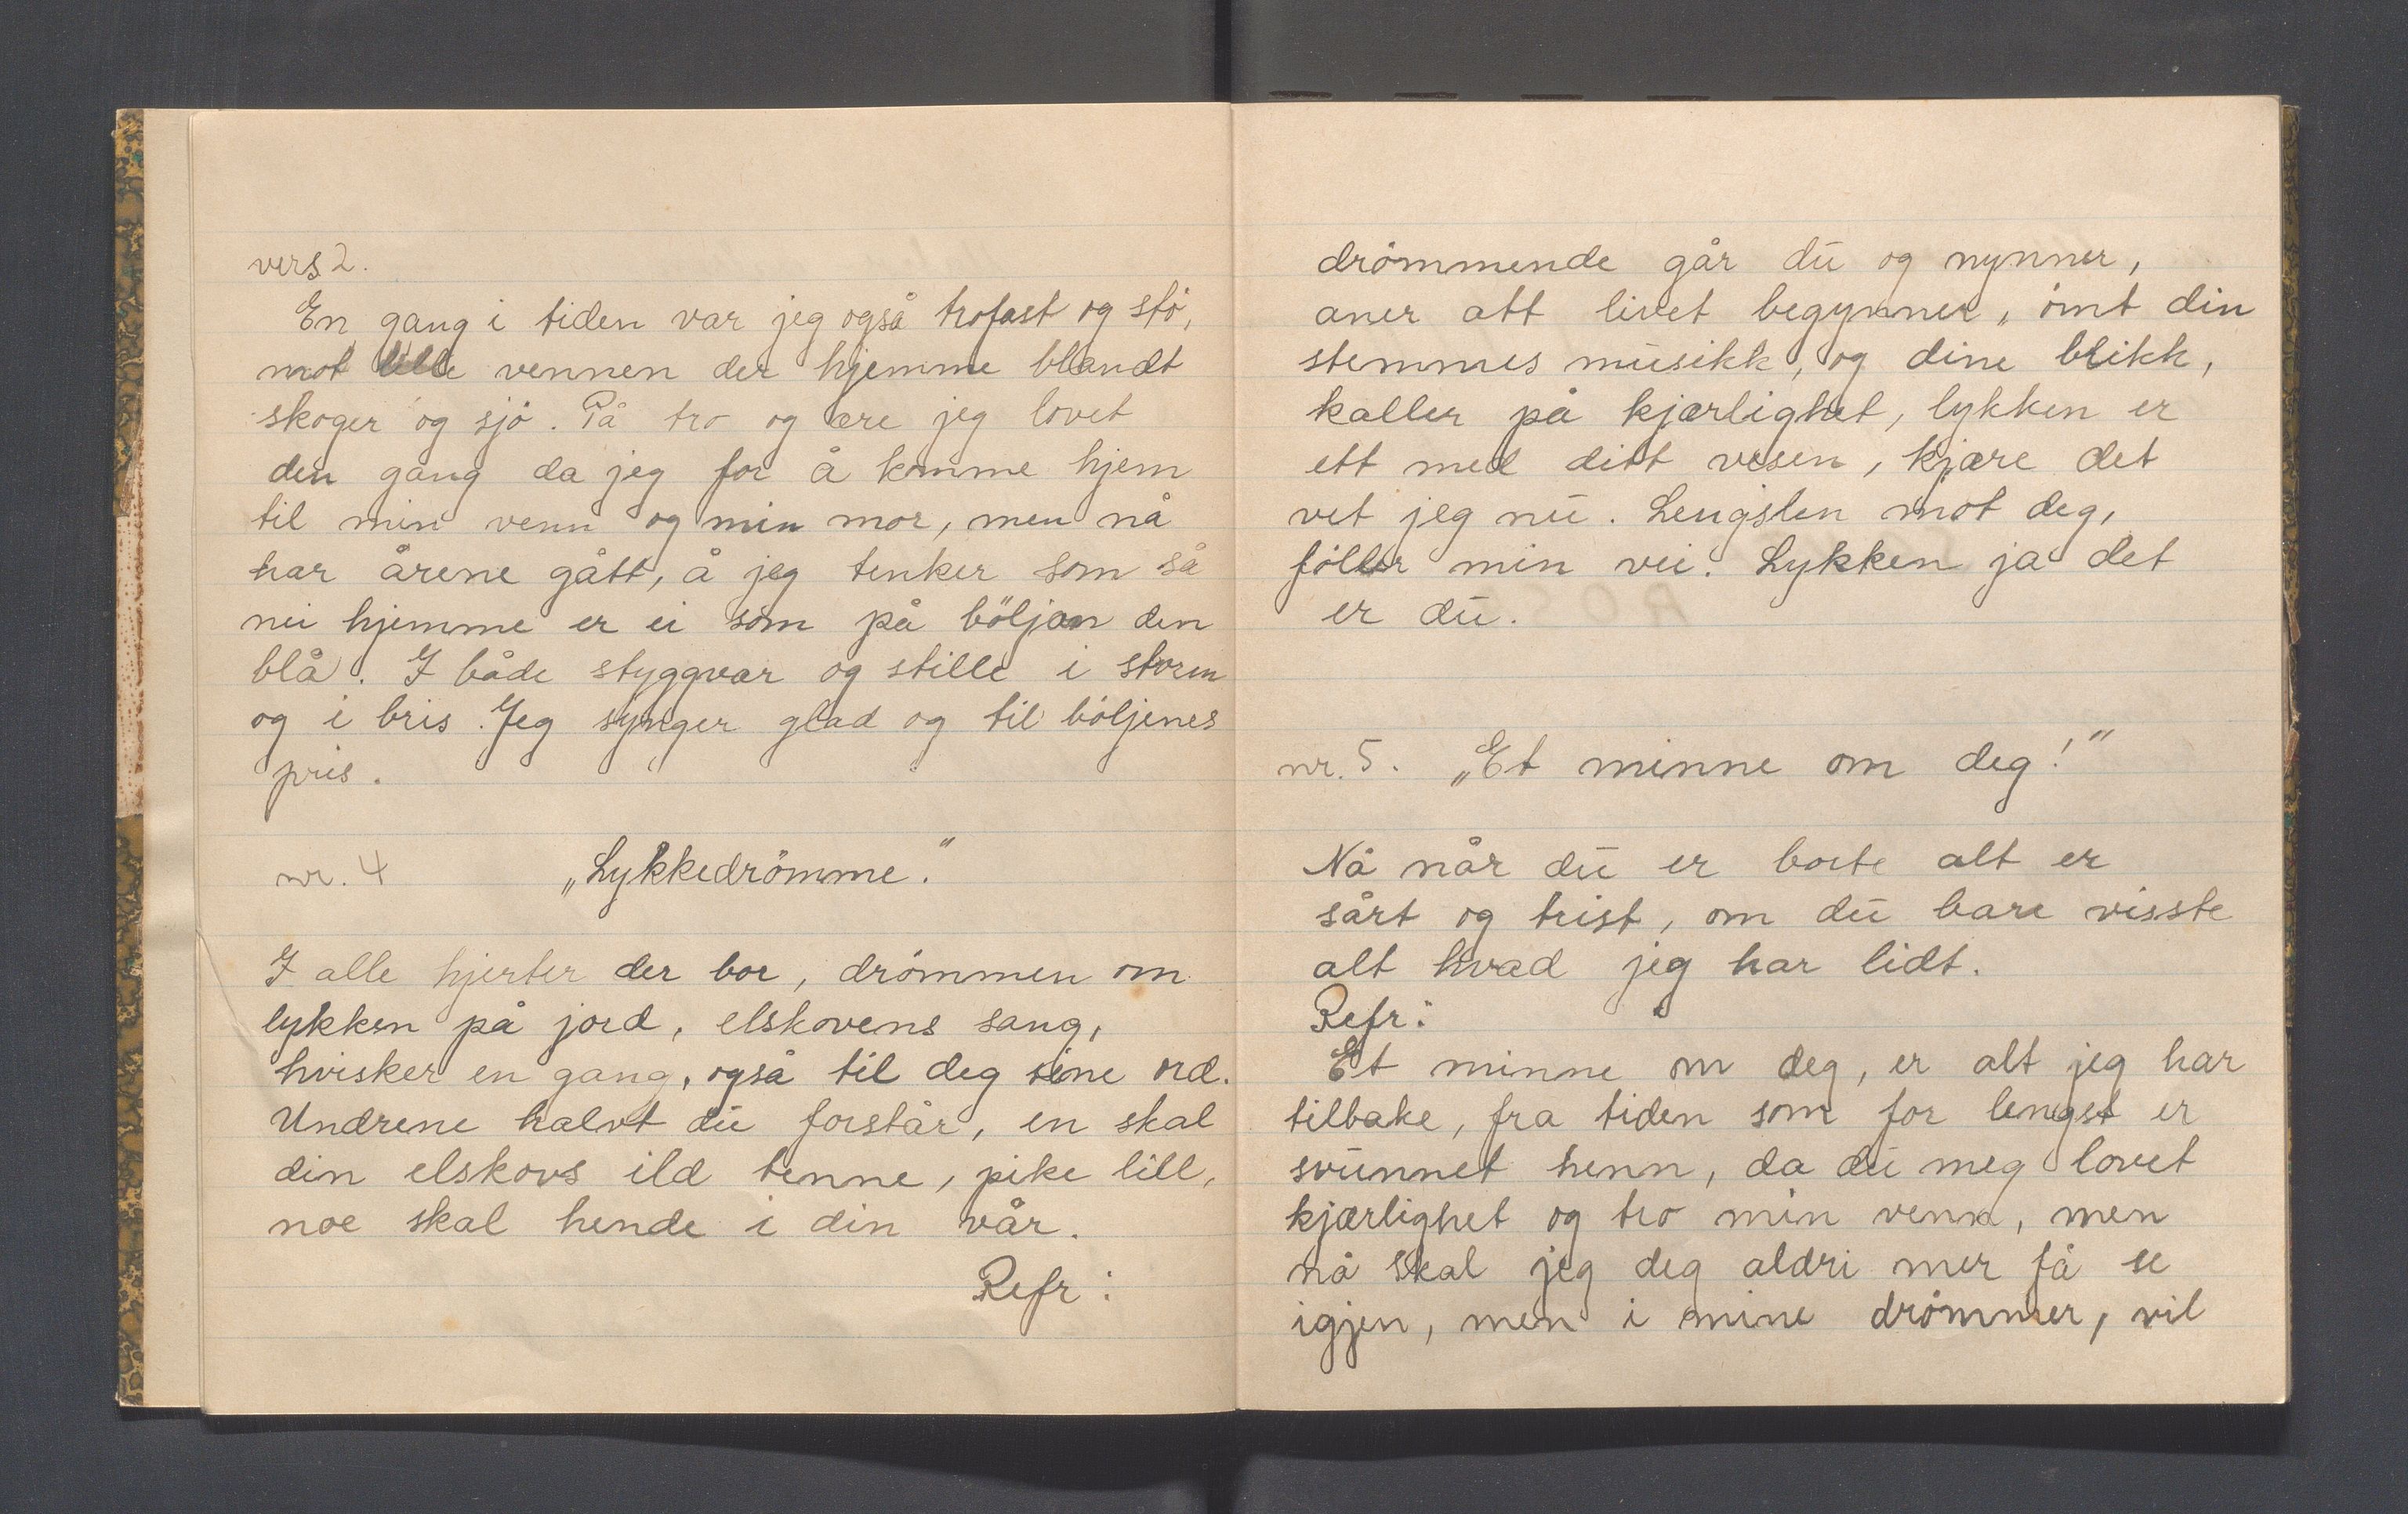 vers 2.
En gang i tiden var jeg også trofast og stö,
mot lille vennen der hjemme blandt
skoger og sjö. På tro og ære jeg lovet
den gang da jeg for å komme hjem
til min venn og min mor, men nå
har årene gått, å jeg tenker som så
nei hjemme er ei som på böljan den
blå. I både styggvær og stille i storm
og i bris. Jeg synger glad og til böljenes
pris.
nr. 4 „Lykkedrömme."
I alle hjerter der bor, drömmen om
lykken på jord, elskovens sang,
hvisker en gang, også til deg sine ord.
Undrene halvt du forstår, en skal
din elskovs ild tenne, pike lill,
noe skal hende i din vår.
Refr:
drömmende går du og nynner,
aner att livet begynner, ömt din
stemmes musikk, og dine blikk,
kaller på kjærlighet, lykken er
ett med ditt vesen, kjære det
vet jeg nu. Lengslen mot deg,
föller min vei. Lykken ja det
er du.
nr. 5. „Et minne om deg!"
Nå når du er borte alt er
sårt og trist, om du bare visste
alt hvad jeg har lidt.
Refr:
Et minne om deg, er alt jeg har
tilbake, fra tiden som for lengst er
svunnet henn, da du meg lovet
kjærlighet og tro min venn, men
nå skal jeg deg aldri mer få se
igjen, men i mine drömmer, vil